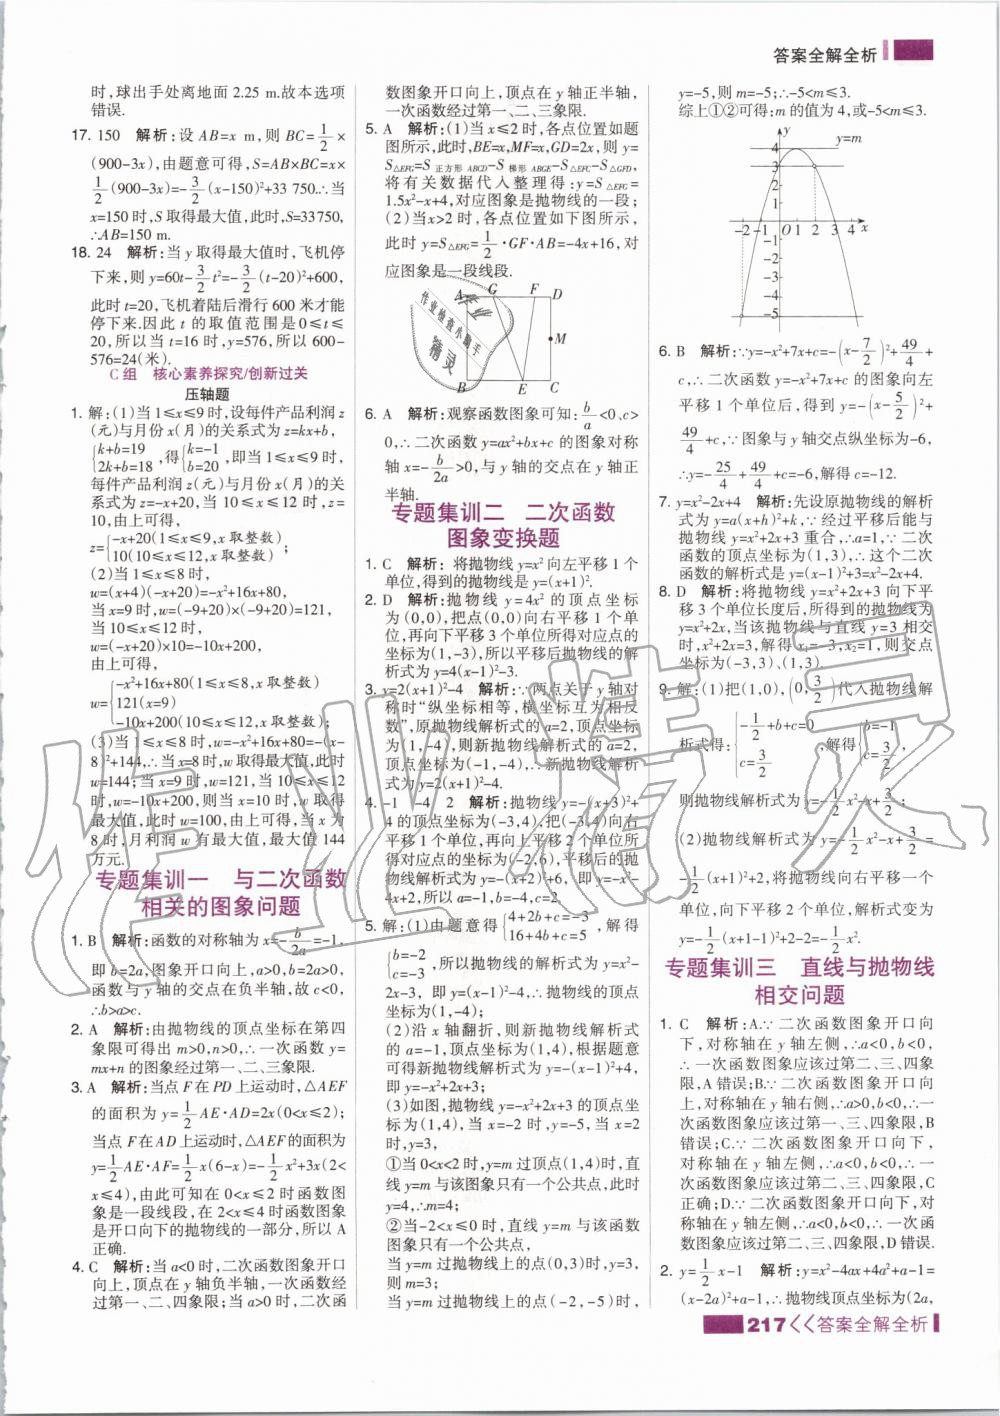 答案全解全析
时,球出手处离地面 2.25 m.故本选项
错误.
17. 150 解析:设 AB=x m,则 BC=1/2×
(900-3x),由题意可得,S=AB×BC=x×
1/2(900-3x)=-3/2(x-150)²+33 750.∴当
x=150时,S取得最大值,此时,S=33750,
∴AB=150 m.
18. 24 解析:当 y 取得最大值时,飞机停
下来,则 y=60t-3/2t²=-3/2(t-20)²+600,
此时 t=20,飞机着陆后滑行 600 米才能
停下来.因此 t 的取值范围是 0≤t≤
20,所以当 t=16 时,y=576,所以 600-
576=24(米).
C组 核心素养探究/创新过关
压轴题
1. 解:(1)当 1≤x≤9 时,设每件产品利润 z
(元)与月份 x(月)的关系式为 z=kx+b,
{k+b=19 2k+b=18,得{k=-1 b=20,即当 1≤x≤9 时,
每件产品利润 z(元)与月份 x(月)的关
系式为 z=-x+20,当 10≤x≤12 时,z=
10,由上可得,
z={-x+20(1≤x≤9,x取整数) 10(10≤x≤12,x取整数);
(2)当 1≤x≤8 时,
w=(x+4)(-x+20)=-x²+16x+80,
当 x=9 时,w=(-9+20)×(-9+20)=121,
当 10≤x≤12 时,
w=(-x+20)×10=-10x+200,
由上可得,
w={-x²+16x+80(1≤x≤8,x取整数)
121(x=9)
-10x+200(10≤x≤12,x取整数);
(3)当 1≤x≤8 时,w=-x²+16x+80=-(x-
8)²+144,∴当 x=8 时,w 取得最大值,此时
w=144;当 x=9 时,w=121,当 10≤x≤12
时,w=-10x+200,则当 x=10 时,w 取得
最大值,此时 w=100,由上可得,当 x 为
8 时,月利润 w 有最大值,最大值 144
万元.
专题集训一 与二次函数
相关的图象问题
1. B 解析:函数的对称轴为 x=-b/2a=-1,
即 b=2a,图象开口向上,a>0,b=2a>0;
函数与 y 轴的交点在负半轴,故 c<0,
∴b>a>c.
2. A 解析:由抛物线的顶点坐标在第四
象限可得出 m>0,n>0,∴一次函数 y=
mx+n 的图象经过第一、二、三象限.
3. A 解析:当点 F 在 PD 上运动时,△AEF
的面积为 y=1/2AE·AD=2x(0<x≤2);
当点 F 在 AD 上运动时,△AEF 的面积为
y=1/2AE·AF=1/2x(6-x)=-1/2x²+3x(2<
x≤4),由此可知在 0<x≤2 时函数图
象是一段线段,在 2<x≤4 时函数图象
是开口向下的抛物线的一部分,所以 A
正确.
4. C 解析:当 a<0 时,二次函数图象开口
向上,顶点在 y 轴负半轴,一次函数经
过第一、二、四象限;当 a>0 时,二次函
数图象开口向上,顶点在 y 轴正半轴,
一次函数经过第一、二、三象限.
5. A 解析:(1)当 x≤2 时,各点位置如题
图所示,此时,BE=x,MF=x,GD=2x,则 y=
S△EFG=S正方形ABCD-S梯形ABGE-S△EFC-S△GFD,
将有关数据代入整理得:y=S△EFG=
1.5x²-x+4,对应图象是抛物线的一段;
(2)当 x>2 时,各点位置如下图所示,
此时 y=S△EFG=1/2·GF·AB=-4x+16,对
应图象是一段线段.
A G F D
M
B E C
6. A 解析:观察函数图象可知:b/a<0、c>
0,∴二次函数 y=ax²+bx+c 的图象对称
轴 x=-b/2a>0,与 y 轴的交点在 y 轴正
半轴.
专题集训二 二次函数
图象变换题
1. C 解析: 将抛物线 y=x² 向左平移 1 个
单位,得到的抛物线是 y=(x+1)².
2. D 解析:抛物线 y=4x² 的顶点坐标
为(0,0),把点(0,0)向右平移 1 个单
位,再向下平移 3 个单位所得对应点的
坐标为(1,-3),所以平移后抛物线的解
析式为 y=4(x-1)²-3.
3. y=2(x+1)²-4 解析:∵两点关于 y 轴对
称时“纵坐标相等,横坐标互为相反
数”,原抛物线解析式的 a=2,顶点坐标
为(1,-4),则新抛物线解析式的 a=2,
顶点坐标为(-1,-4),∴新抛物线解析式
为 y=2(x+1)²-4.
4. -1 -4 2 解析:抛物线 y=-(x+3)²+
4 的顶点坐标为(-3,4),把(-3,4)向右
平移 1 个单位,再向上平移 2 个单位所
得对应点的坐标为(-2,6),平移后的抛
物线解析式为 y=-(x+2)²+6,即 y=-x²-
4x+2,所以 a=-1,b=-4,c=2.
5. 解:(1)由题意得{4+2b+c=-3 16+4b+c=5,解得
{b=-2 c=-3,所以抛物线的解析式为 y=x²-
2x-3,即 y=(x-1)²-4,∴抛物线的顶点
坐标为(1,-4);
(2)沿 x 轴翻折,则新抛物线解析式
的 a=-1,顶点坐标为(1,4),根据题意
可得新抛物线解析式为 y=-(x-1)²+4,
即 y=-x²+2x+3;
(3)如图,抛物线 y=-x²+2x+3 的顶点坐
标为(1,4),当 x=-2 时,y=-5,当 x=2
时,y=3,
①当 0<x<2 时,y=m 过顶点(1,4)时,直
线 y=m 与该图象只有一个公共点,此时
y=4,∴m=4;
②当-2<x≤0 时,直线 y=m 与该函数
图象只有一个公共点,
当 y=m 过抛物线上的点(0,3)时,y=3,
则 m=3;
当 y=m 过抛物线上的点(-2,-5)时,
y=-5,则 m=-5;∴-5<m≤3.
综上①②可得:m 的值为 4,或-5<m≤3.
y
y=m
4
3
2
1
-2 -1 O 1 2 3 4 x
-1
-2
-3
-4
-5
6. B 解析:∵y=-x²+7x+c=-(x-7/2)²+49/4+
c,∴二次函数 y=-x²+7x+c 的图象向左
平移 1 个单位后,得到 y=-(x-5/2)²+
49/4+c,∵图象与 y 轴交点纵坐标为-6,
∴y=-25/4+49/4+c=-6,解得 c=-12.
7. y=x²-2x+4 解析:先设原抛物线的解析
式为 y=a(x+h)²+k,∵经过平移后能与
抛物线 y=x²+2x+3 重合,∴a=1,∵二次
函数的顶点坐标为(1,3),∴这个二次
函数的解析式是 y=(x-1)²+3=x²-2x+4.
8. D 解析:将抛物线 y=x²+2x+3 向下平
移 3 个单位长度后,所得到的抛物线为
y=x²+2x,当该抛物线与直线 y=3 相交
时,x²+2x=3,解得 x₁=-3,x₂=1,则交点
坐标为(-3,3)、(1,3).
9. 解:(1)把(1,0),(0,3/2)代入抛物线解
析式得:{-1/2+b+c=0 c=3/2,解得{b=-1 c=3/2,
则抛物线解析式为 y=-1/2x²-x+3/2;
(2)抛物线解析式为 y=-1/2x²-x+3/2=
-1/2(x+1)²+2,将抛物线向右平移一个
单位,向下平移 2 个单位,解析式变为
y=-1/2(x+1-1)²+2-2=-1/2x².
专题集训三 直线与抛物线
相交问题
1. C 解析:A.∵二次函数图象开口向
下,对称轴在 y 轴左侧,∴a<0,b<0,
∴一次函数图象应该过第二、三、四象
限,A 错误;B.∵二次函数图象开口向
上,对称轴在 y 轴右侧,∴a>0,b<0,∴一
次函数图象应该过第一、三、四象限,B
错误;C.∵二次函数图象开口向下,
对称轴在 y 轴左侧,∴a<0,b<0,∴一
次函数图象应该过第二、三、四象限,C
正确;D.∵二次函数图象开口向下,对
称轴在 y 轴左侧,∴a<0,b<0,∴一次函
数图象应该过第二、三、四象限,D 错误.
2. y=1/2x-1 解析:y=x²-4ax+4a²+a-1=
(x-2a)²+a-1,∴抛物线顶点坐标为(2a,
217<<答案全解全析
作业精灵
作业
作业检查小助手
精灵